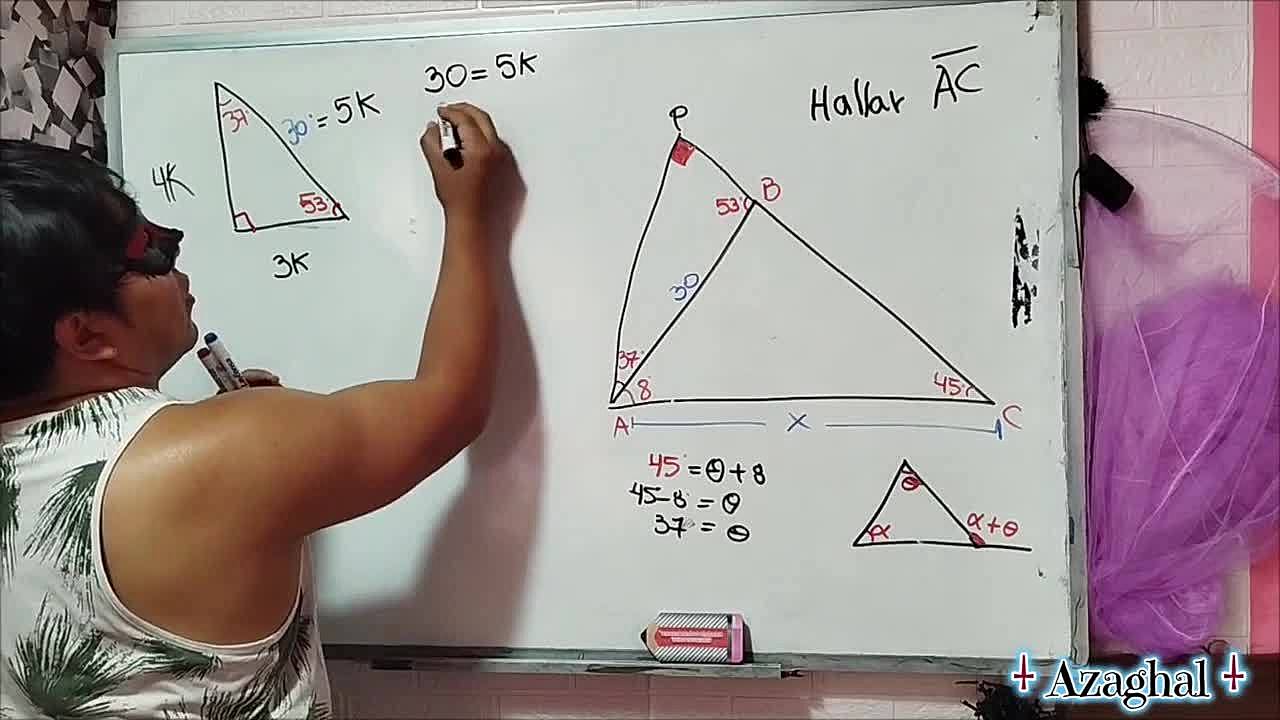 30 = 5K
Hallar AC
37°
30° = 5K
4K
53°
3K
P
53°
B
30
37°
8°
45°
A
x
C
45° = θ + 8
45-8 = θ
37° = θ
θ
α
α+θ
Azaghal